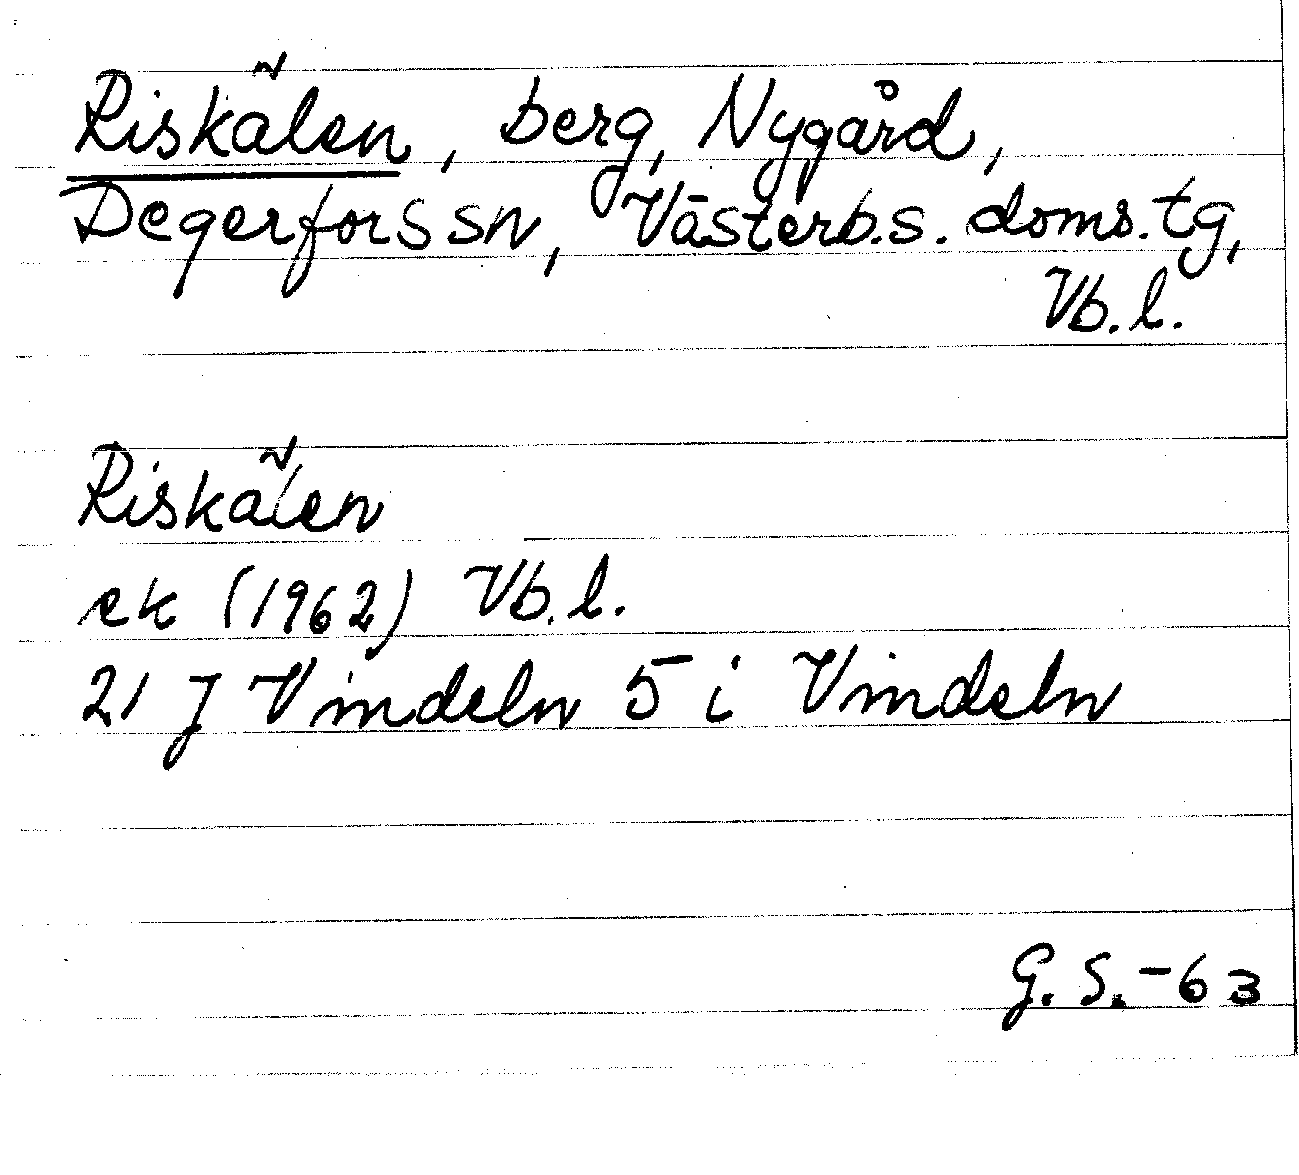 Riskälen, berg, Nygård,
Degerfors sn, Västerb.s. doms.tg,
Vb.l.
Riskälen
ek (1962) Vb.l.
21 J Vindeln 5 i Vindeln
G.S.-63